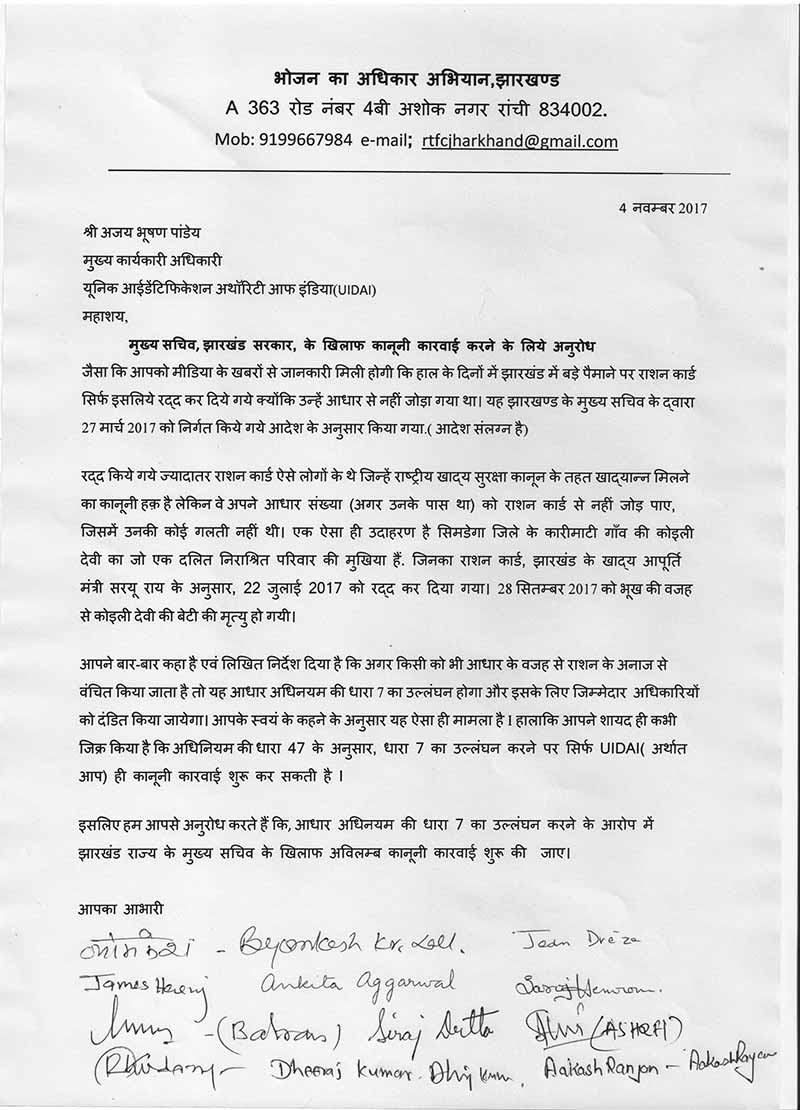 भोजन का अधिकार अभियान,झारखण्ड
A 363 रोड नंबर 4बी अशोक नगर रांची 834002.
Mob: 9199667984 e-mail; rtfcjharkhand@gmail.com
4 नवम्बर 2017
श्री अजय भूषण पांडेय
मुख्य कार्यकारी अधिकारी
यूनिक आईडेंटिफिकेशन अथॉरिटी आफ इंडिया(UIDAI)
महाशय,
मुख्य सचिव, झारखंड सरकार, के खिलाफ कानूनी कारवाई करने के लिये अनुरोध
जैसा कि आपको मीडिया के खबरों से जानकारी मिली होगी कि हाल के दिनों में झारखंड में बड़े पैमाने पर राशन कार्ड
सिर्फ इसलिये रद्द कर दिये गये क्योंकि उन्हें आधार से नहीं जोड़ा गया था। यह झारखण्ड के मुख्य सचिव के द्वारा
27 मार्च 2017 को निर्गत किये गये आदेश के अनुसार किया गया.( आदेश संलग्न है)
रद्द किये गये ज्यादातर राशन कार्ड ऐसे लोगों के थे जिन्हें राष्ट्रीय खाद्य सुरक्षा कानून के तहत खाद्यान्न मिलने
का कानूनी हक़ है लेकिन वे अपने आधार संख्या (अगर उनके पास था) को राशन कार्ड से नहीं जोड़ पाए,
जिसमें उनकी कोई गलती नहीं थी। एक ऐसा ही उदाहरण है सिमडेगा जिले के कारीमाटी गाँव की कोइली
देवी का जो एक दलित निराश्रित परिवार की मुखिया हैं. जिनका राशन कार्ड, झारखंड के खाद्य आपूर्ति
मंत्री सरयू राय के अनुसार, 22 जुलाई 2017 को रद्द कर दिया गया। 28 सितम्बर 2017 को भूख की वजह
से कोइली देवी की बेटी की मृत्यु हो गयी।
आपने बार-बार कहा है एवं लिखित निर्देश दिया है कि अगर किसी को भी आधार के वजह से राशन के अनाज से
वंचित किया जाता है तो यह आधार अधिनयम की धारा 7 का उल्लंघन होगा और इसके लिए जिम्मेदार अधिकारियों
को दंडित किया जायेगा। आपके स्वयं के कहने के अनुसार यह ऐसा ही मामला है I हालाकि आपने शायद ही कभी
जिक्र किया है कि अधिनियम की धारा 47 के अनुसार, धारा 7 का उल्लंघन करने पर सिर्फ UIDAI( अर्थात
आप) ही कानूनी कारवाई शुरू कर सकती है I
इसलिए हम आपसे अनुरोध करते हैं कि, आधार अधिनयम की धारा 7 का उल्लंघन करने के आरोप में
झारखंड राज्य के मुख्य सचिव के खिलाफ अविलम्ब कानूनी कारवाई शुरू की जाए।
आपका आभारी
- Kr. Lall. Jean Drèze
James Herenj Ankita Aggarwal Saroj Hemrom.
Siraj Dutta (ASHRFI)
Dheeraj Kumar. AakashRanjan - AakashRanjan